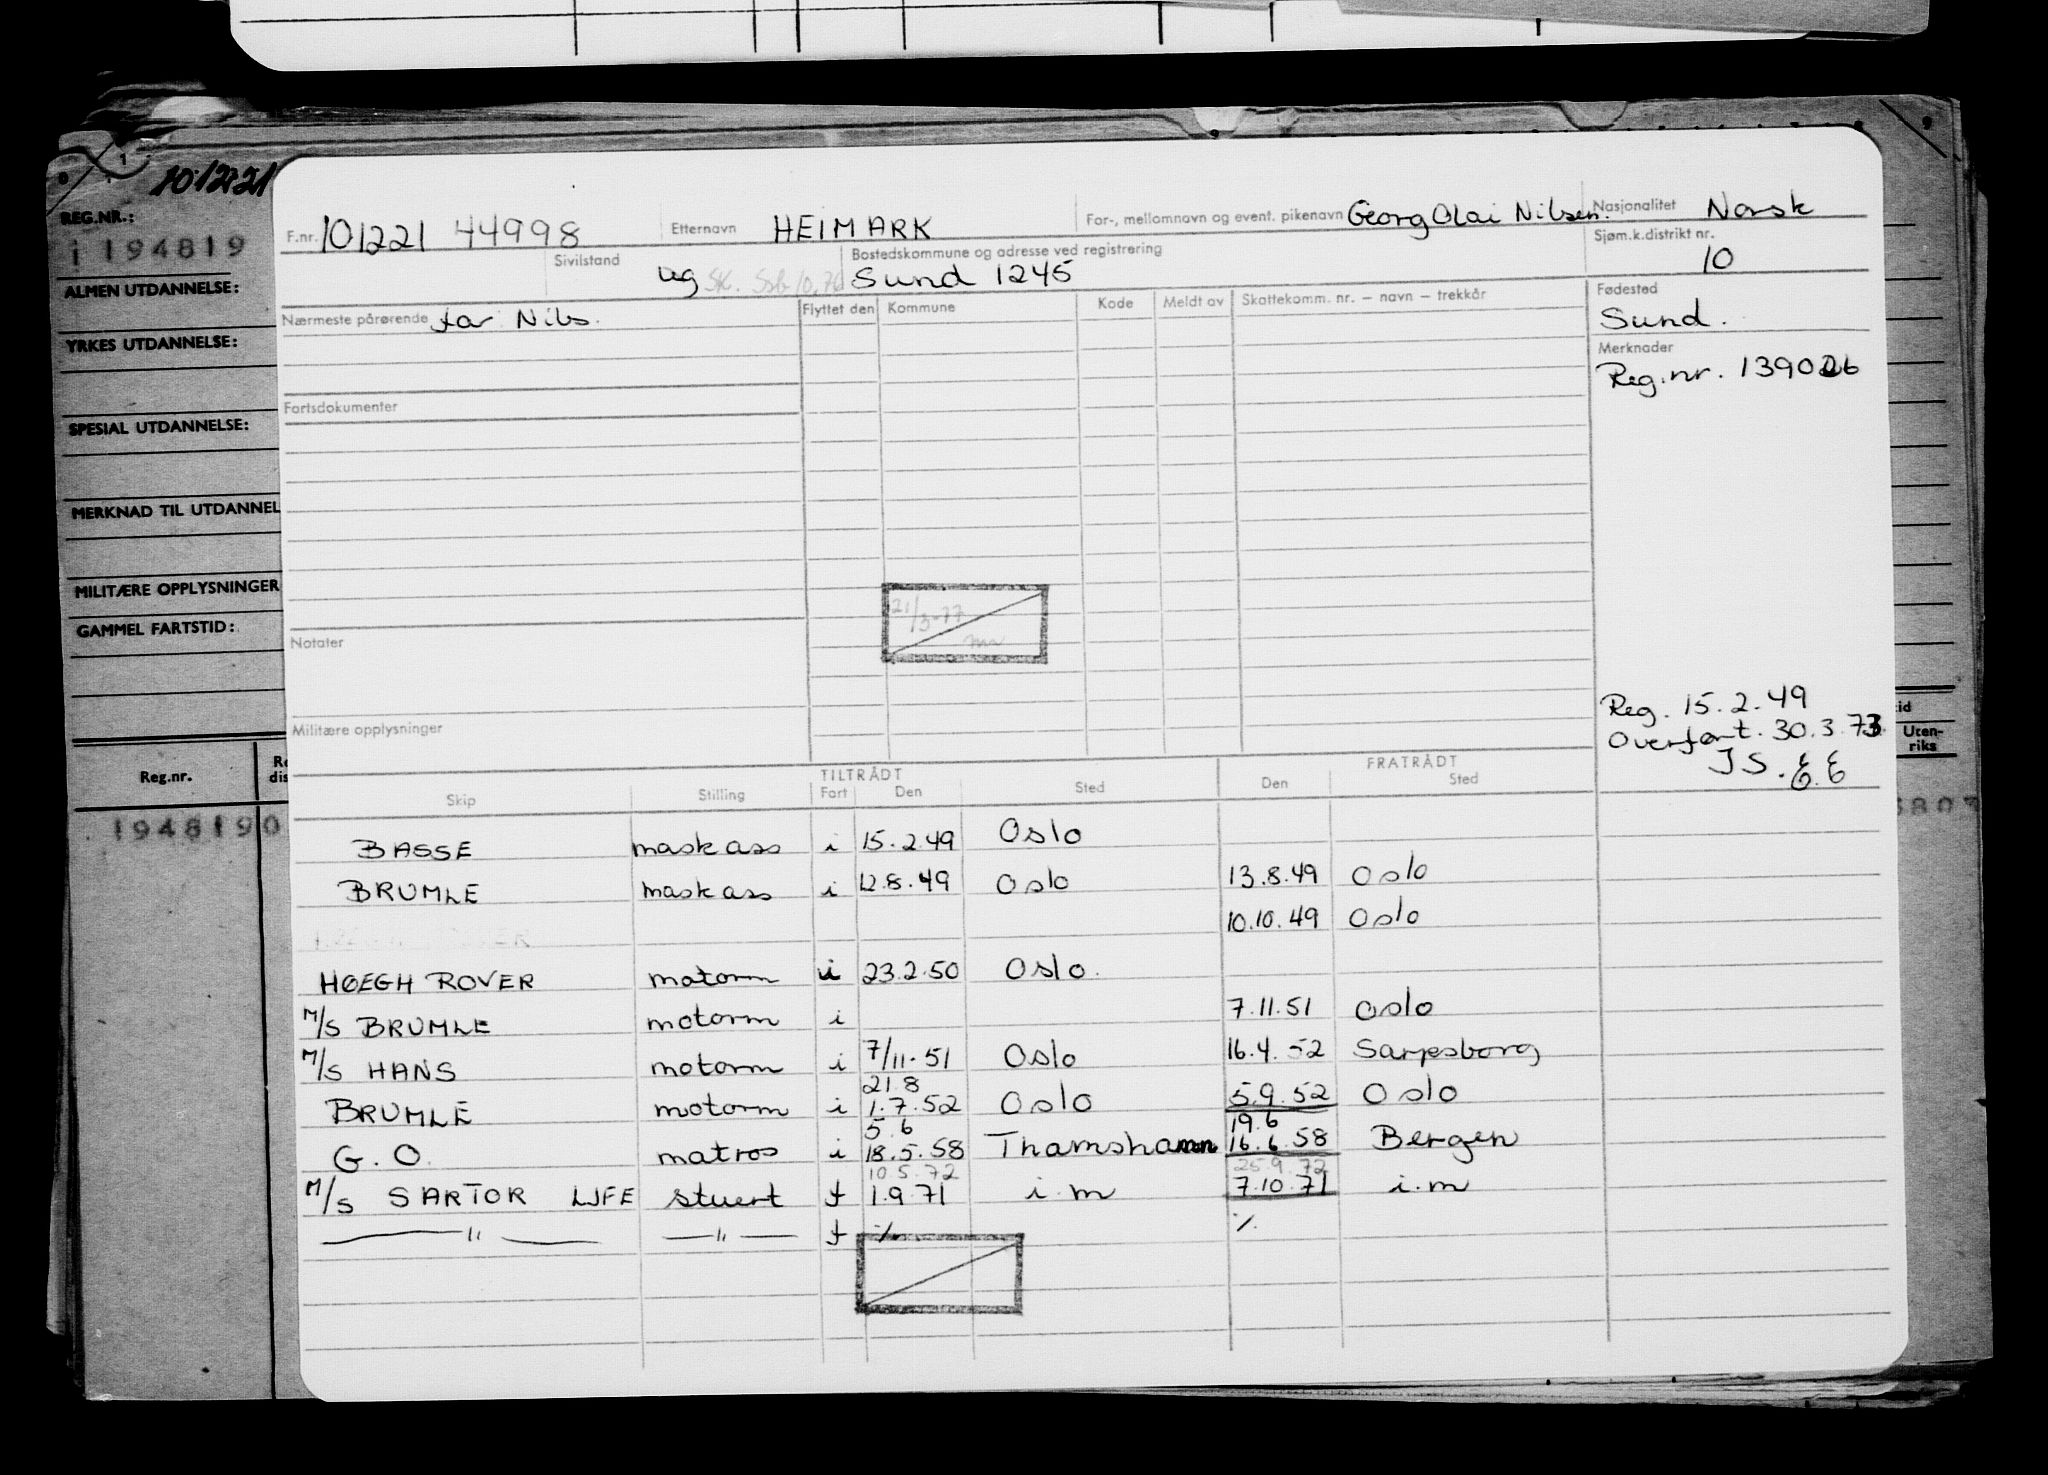 10 12 21
REG.NR.:
i 194819
ALMEN UTDANNELSE:
YRKES UTDANNELSE:
SPESIAL UTDANNELSE:
MERKNAD TIL UTDANNEL
MILITÆRE OPPLYSNINGER
GAMMEL FARTSTID:
Reg.nr.
1948190
F.nr. 101221 44998 Etternavn HEIMARK For-, mellomnavn og event. pikenavn Georg Olai Nilsen. Nasjonalitet Norsk
Sivilstand ug Bostedskommune og adresse ved registrering Sund 1245 Sjøm.k.distrikt nr. 10
Nærmeste pårørende far Nils. Flyttet den Kommune Kode Meldt av Skattekomm. nr. – navn – trekkår Fødested
Sund.
Merknader
Reg.nr. 139026
Fartsdokumenter
21/3-77
Notater
Militære opplysninger
Reg. 15.2.49
Overført. 30.3.73
JS. EE
TILTRÅDT FRATRÅDT
Skip Stilling Fart Den Sted Den Sted
BASSE mask ass i 15.2.49 Oslo
BRUMLE mask ass i 12.8.49 Oslo 13.8.49 Oslo
10.10.49 Oslo
HØEGH ROVER motorm u 23.2.50 Oslo.
M/S BRUMLE motorm i 7.11.51 Oslo
M/S HANS motorm i 7/11.51 Oslo 16.4.52 Sarpsborg
21.8
BRUMLE motorm i 1.7.52 Oslo 5.9.52 Oslo
5.6 19.6
G.O. matros i 18.5.58 Thamshamn 16.6.58 Bergen
10.5.72 25.9.72
M/S SARTOR LJFE stuert f 1.9.71 i.m 7.10.71 i.m
—"— —"— f ./. ./.
Uten-
riks